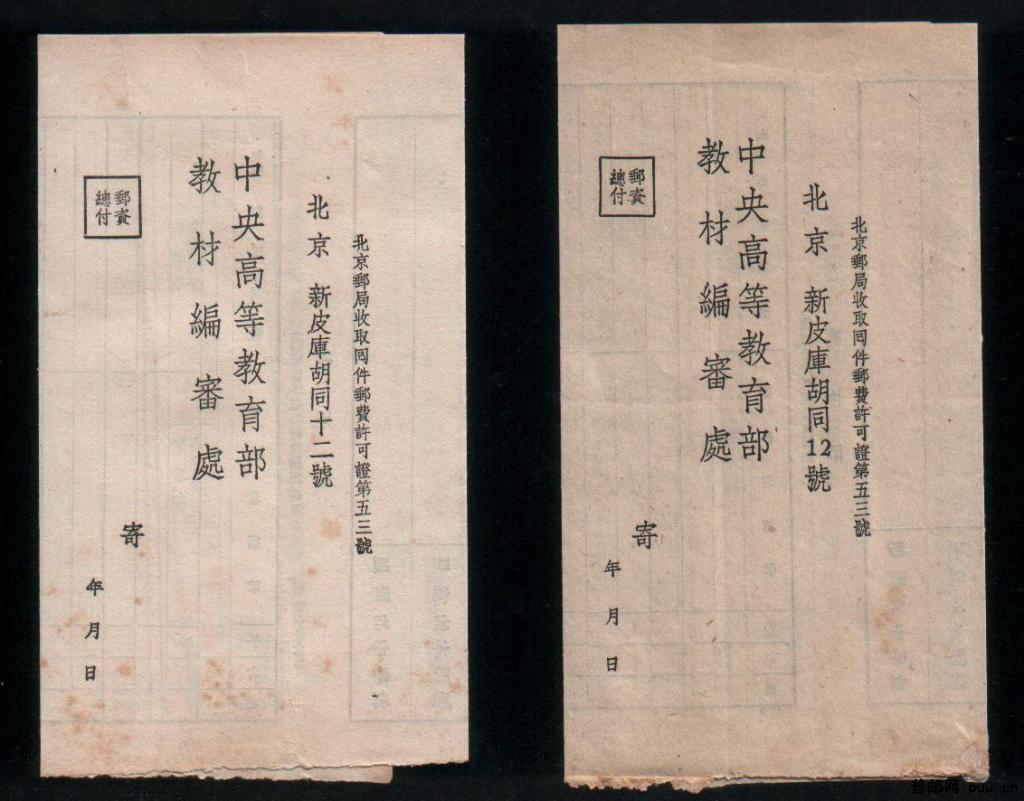 北京郵局收取囘件郵費許可證第五三號
北京 新皮庫胡同十二號
中央高等教育部
教材編審處
郵資
總付
寄
年 月 日
北京郵局收取囘件郵費許可證第五三號
北京 新皮庫胡同12號
中央高等教育部
教材編審處
郵資
總付
寄
年 月 日
普邮网 puu.cn